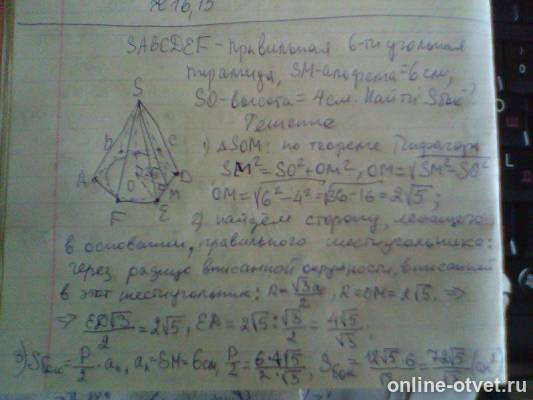 SABCDEF - правильная 6-ти угольная
пирамида, SM - апофема = 6 см,
SO - высота = 4 см. Найти Sбок - ?
Решение
1) △SOM: по теореме Пифагора
SM² = SO² + OM², OM = √SM² - SO²
OM = √6² - 4² = √36 - 16 = 2√5;
2) найдём сторону, лежащего
в основании, правильного шестиугольника:
через радиус вписанной окружности, вписанной
в этот шестиугольник: R = √3a/2, R = OM = 2√5, ⇒
⇒ ED√3/2 = 2√5, ED = 2√5 : √3/2 = 4√5/√3,
3) Sбок = P/2 · aₙ, aₙ = SM = 6 см, P/2 = 6·4√5/2·√3, Sбок = 12√5·6/√3 = 72√5/√3 (см²)
S
B
C
A
D
O
M
F
E
online-otvet.ru